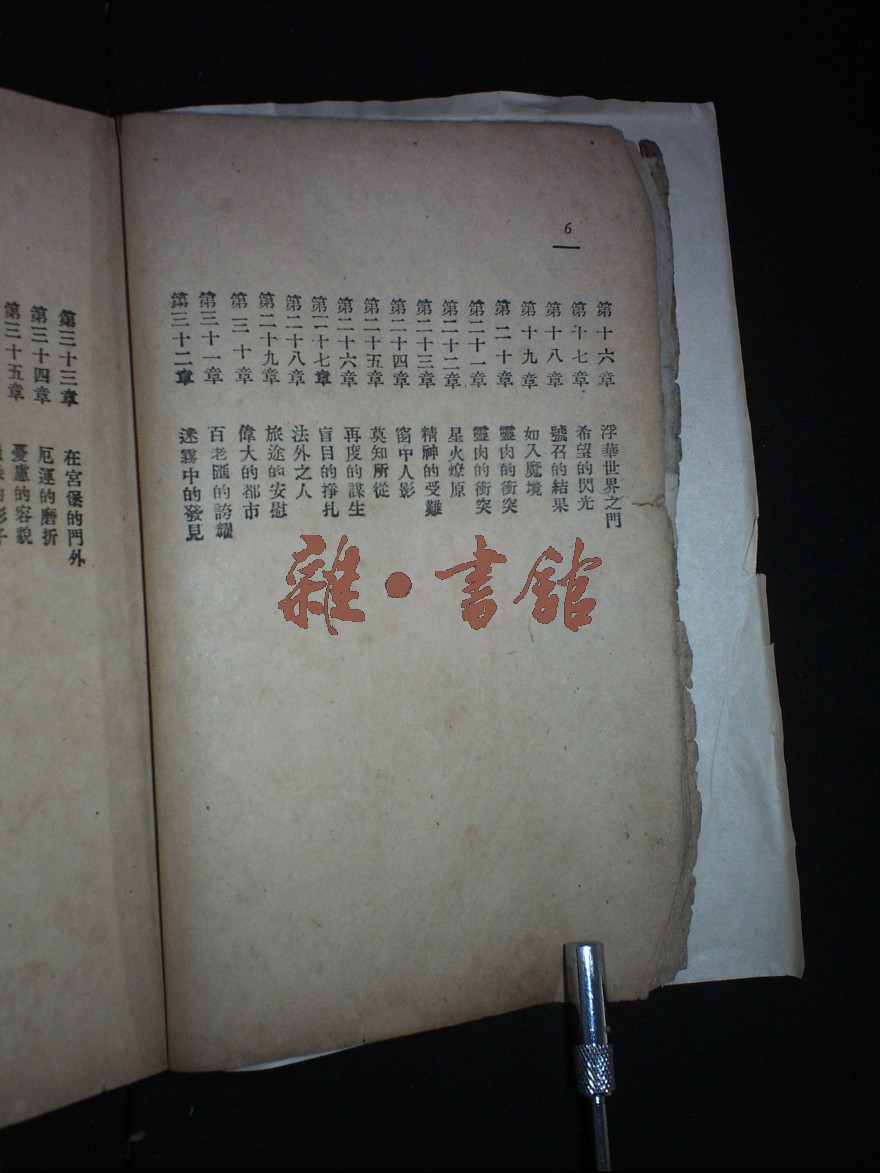 6
第十六章 浮華世界之門
第十七章 希望的閃光
第十八章 號召的結果
第十九章 如入魔境
第二十章 靈肉的衝突
第二十一章 靈肉的衝突
第二十二章 星火燎原
第二十三章 精神的受難
第二十四章 窗中人影
第二十五章 莫知所從
第二十六章 再度的謀生
第二十七章 盲目的掙扎
第二十八章 法外之人
第二十九章 旅途的安慰
第三十章 偉大的都市
第三十一章 百老匯的誇耀
第三十二章 迷霧中的發見
第三十三章 在宮堡的門外
第三十四章 厄運的磨折
第三十五章 憂慮的容貌
雜·書舘